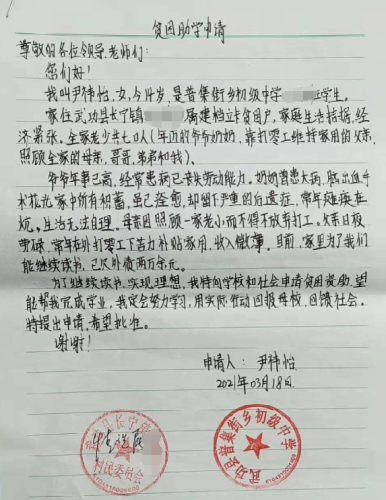 贫困助学申请
尊敬的各位领导、老师们：
您们好！
我叫尹祎怡，女，今14岁，是普集街乡初级中学 班学生。
家住武功县长宁镇 属建档立卡贫困户，家庭生活拮据，经
济紧张。全家老少共七口人（年迈的爷爷奶奶，靠打零工维持家用的父亲，
照顾全家的母亲，哥哥，弟和我）。
爷爷年事已高，经常患病已丧失劳动能力。奶奶曾患大病，脑出血手
术花光家中所有积蓄，虽已痊愈，却留下严重的后遗症，常年瘫痪在
炕，生活无法自理，母亲因照顾一家老小而不得不放弃打工。父亲日夜
常年在外打零工下苦力补贴家用，收入微薄。目前，家里为了我们
能继续读书，已欠外债两万余元。
为了继续读书，实现理想，我特向学校和社会申请贫困资助，望
能帮我完成学业，我定会努力学习，用实际行动回报母校，回馈社会。
特提出申请，希望批准。
谢谢！
申请人：尹祎怡
2021年03月18日
武功县长宁镇
村民委员会
武功县普集街乡初级中学